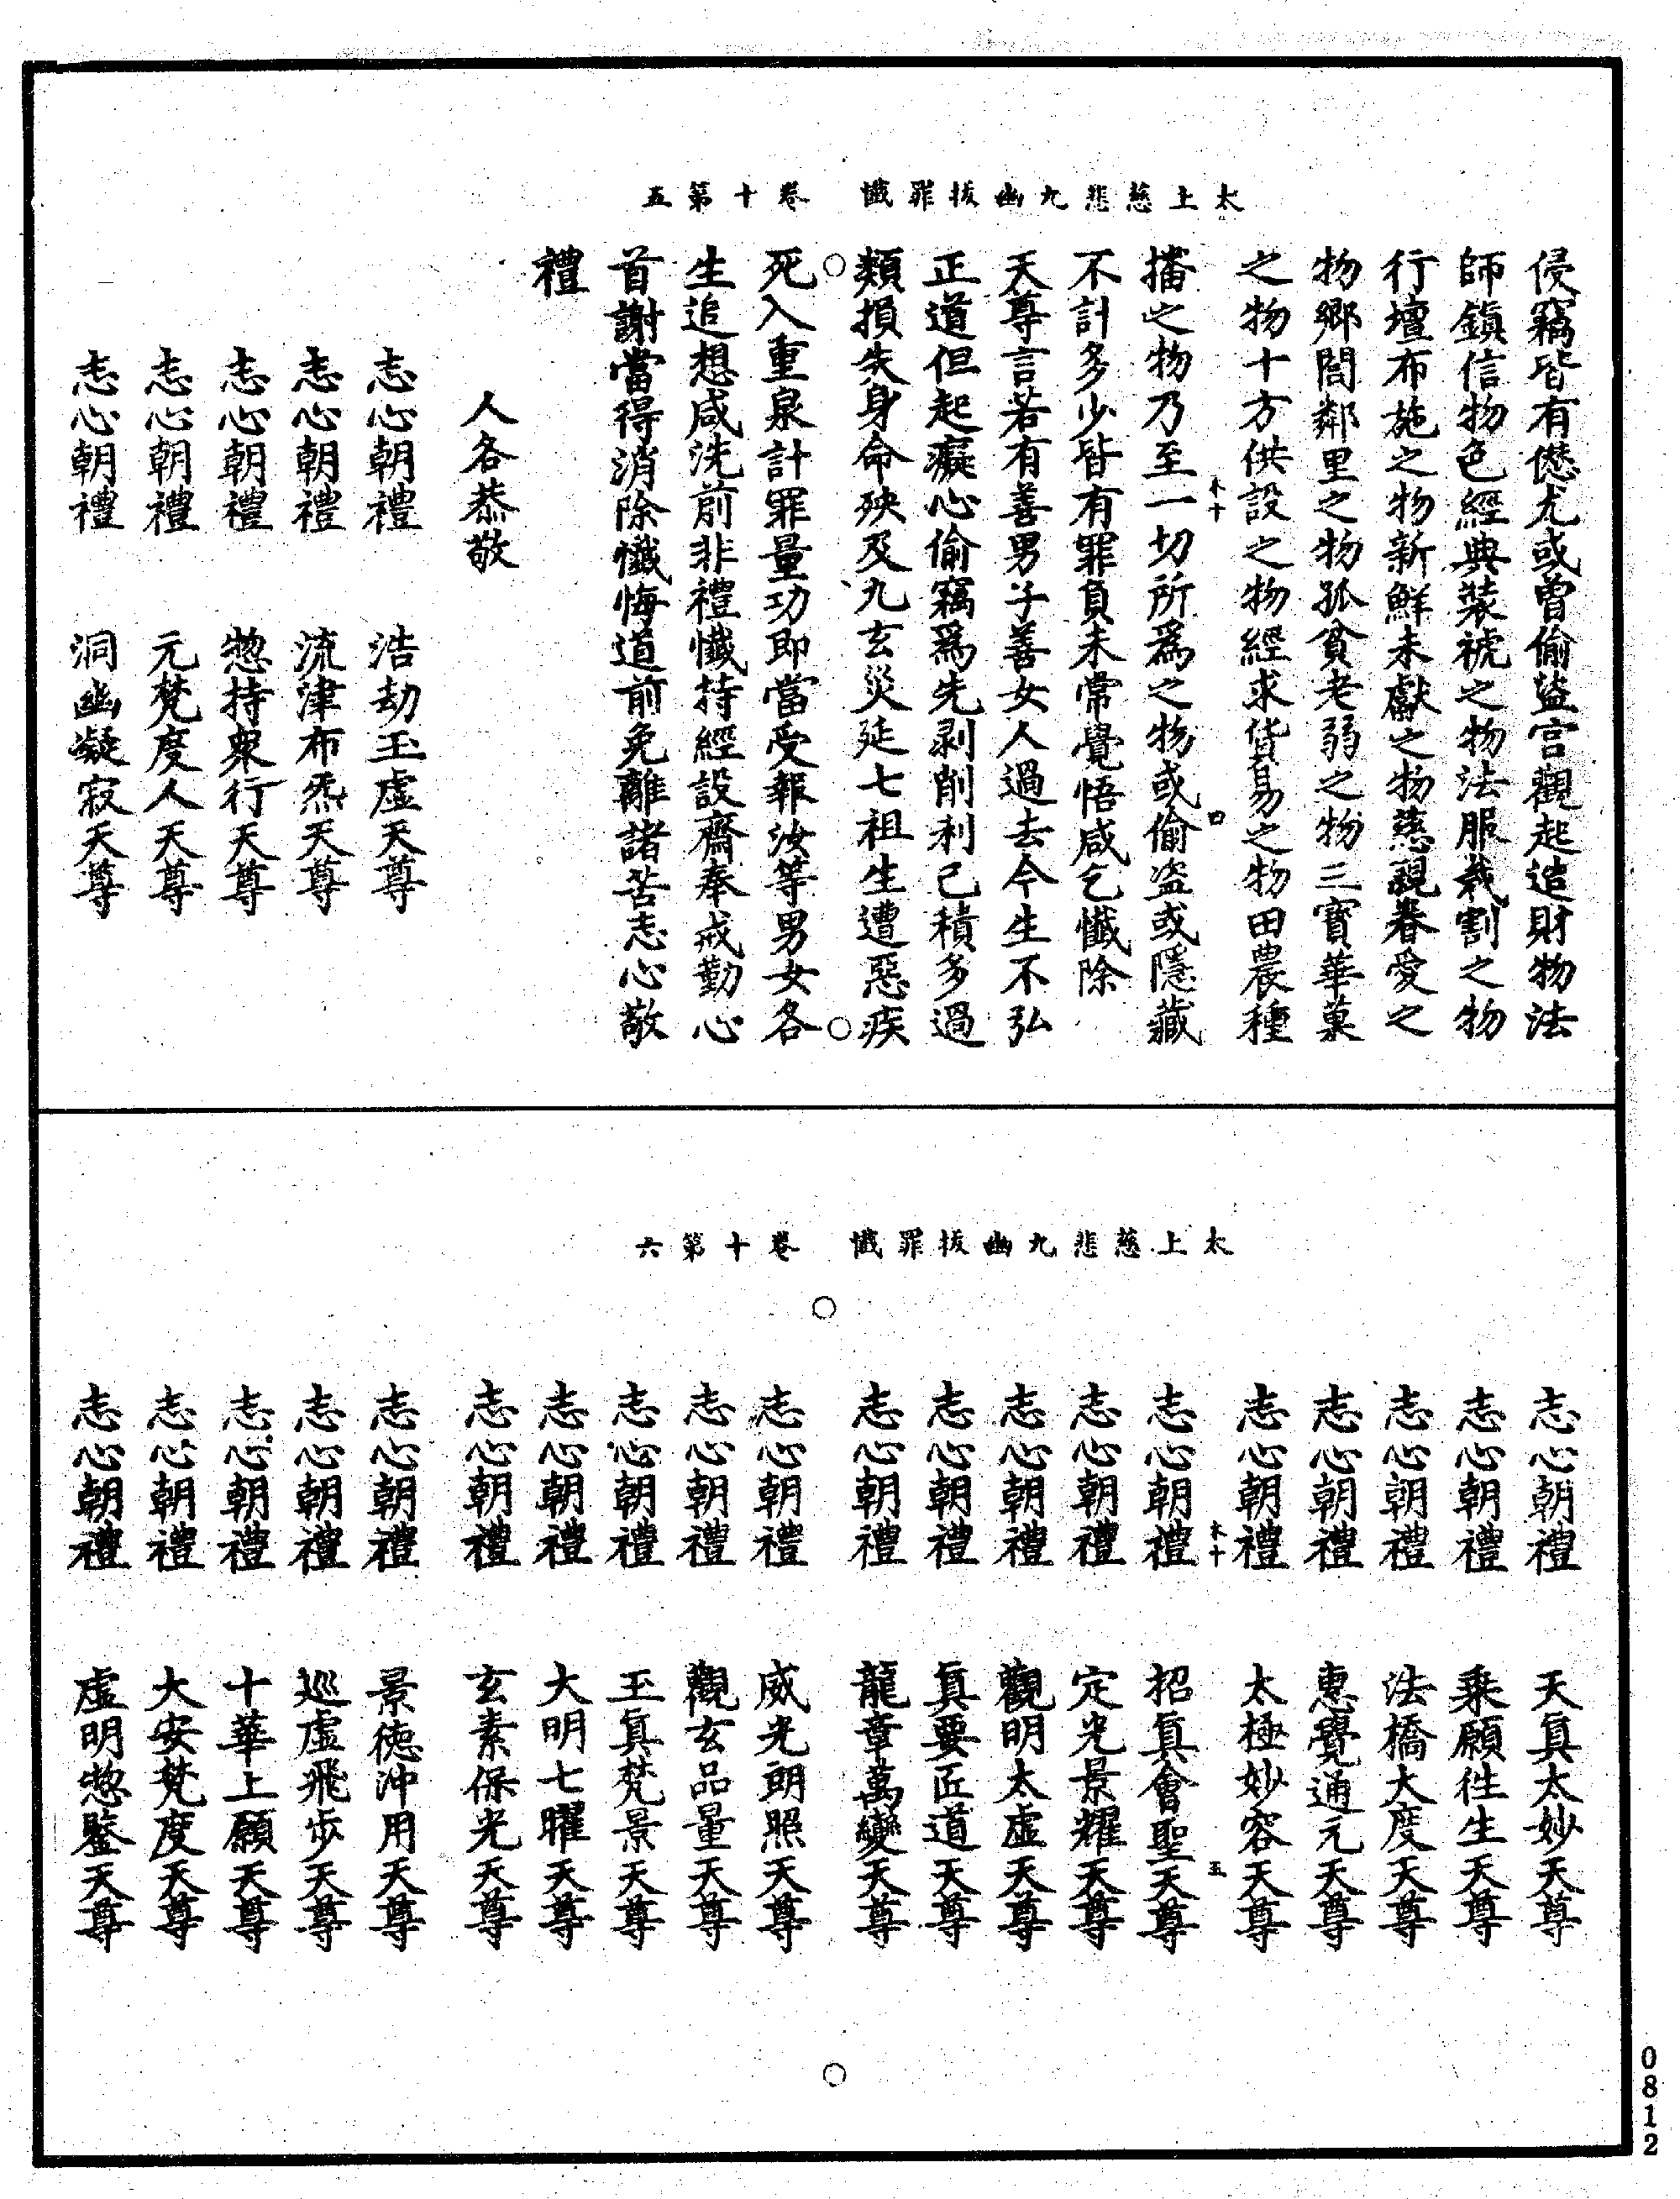 太上慈悲九幽拔罪懺　卷十第五
侵竊皆有愆尤或曾偷盜宫觀起造財物法
師鎮信物色經典裝褫之物法服裁割之物
行壇布施之物新鮮未獻之物慈親眷愛之
物鄉閭鄰里之物孤貧老弱之物三寶華菓
之物十方供設之物經求貨易之物田農種
木十　四
播之物乃至一切所爲之物或偷盗或隱藏
不計多少皆有罪負未常覺悟咸乞懺除
天尊言若有善男子善女人過去今生不弘
正道但起癡心偷竊爲先剥削利己積多過
類損失身命殃及九玄災延七祖生遭惡疾
死入重泉計罪量功即當受報汝等男女各
生追想咸洗前非禮懺持經設齋奉戒勤心
首謝當得消除懺悔道前免離諸苦志心敬
禮
人各恭敬
志心朝禮　浩劫玉虛天尊
志心朝禮　流津布炁天尊
志心朝禮　惣持衆行天尊
志心朝禮　元梵度人天尊
志心朝禮　洞幽凝寂天尊
太上慈悲九幽拔罪懺　卷十第六
志心朝禮　天眞太妙天尊
志心朝禮　乗願徃生天尊
志心朝禮　法橋大度天尊
志心朝禮　惠覺通元天尊
志心朝禮　太極妙容天尊
木十　五
志心朝禮　招眞會聖天尊
志心朝禮　定光景耀天尊
志心朝禮　觀明太虛天尊
志心朝禮　眞要匠道天尊
志心朝禮　龍章萬變天尊
志心朝禮　威光朗照天尊
志心朝禮　觀玄品量天尊
志心朝禮　玉眞梵景天尊
志心朝禮　大明七曜天尊
志心朝禮　玄素保光天尊
志心朝禮　景德沖用天尊
志心朝禮　巡虛飛步天尊
志心朝禮　十華上願天尊
志心朝禮　大安梵度天尊
志心朝禮　虛明惣鑒天尊
0812